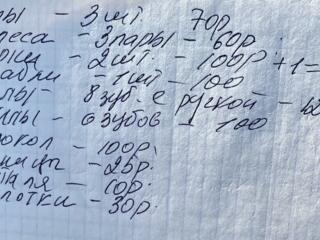 ры - 3 шт 70р
леса - 3 пары - 60р.
2 шт. - 100р +1=
абли - 1 шт - 100
лы - 8 зуб. с ручкой -
илы - 6 зубов - 100
окол - 100р.
ницы - 25р.
каля - 10р.
лотки - 30р.